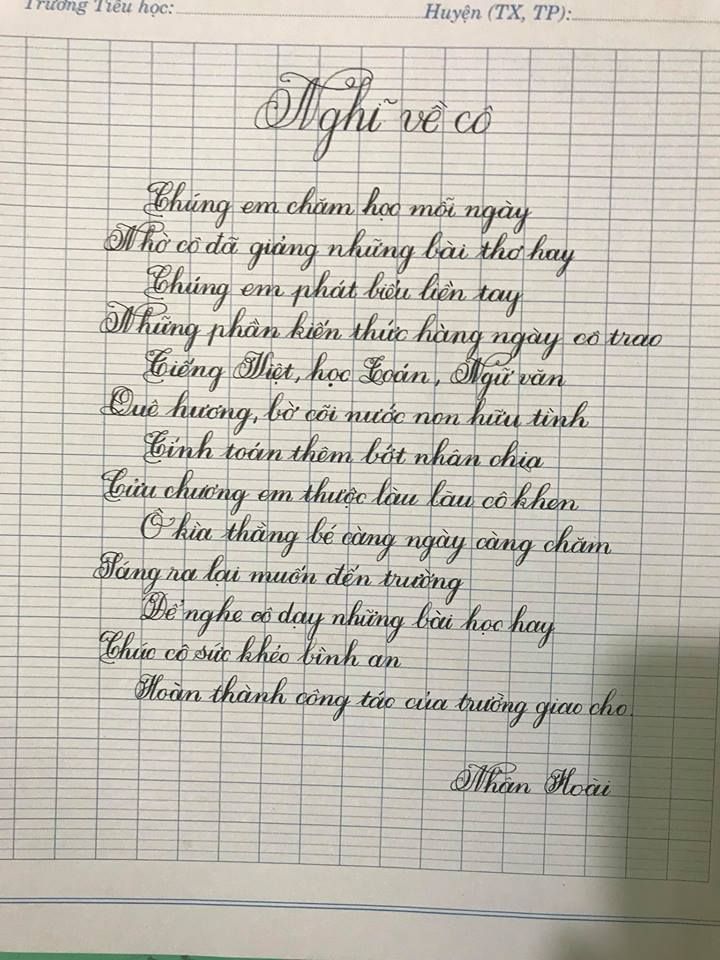 Trường Tiểu học:
Huyện (TX, TP):
Nghĩ về cô
Chúng em chăm học mỗi ngày
Nhờ cô đã giảng những bài thơ hay
Chúng em phát biểu liền tay
Những phần kiến thức hàng ngày cô trao
Tiếng Việt, học Toán, Ngữ văn
Quê hương, bờ cõi nước non hữu tình
Tính toán thêm bớt nhân chia
Cửu chương em thuộc làu làu cô khen
Ồ kìa thằng bé càng ngày càng chăm
Sáng ra lại muốn đến trường
Để nghe cô dạy những bài học hay
Chúc cô sức khẻo bình an
Hoàn thành công tác của trường giao cho.
Nhân Hoài